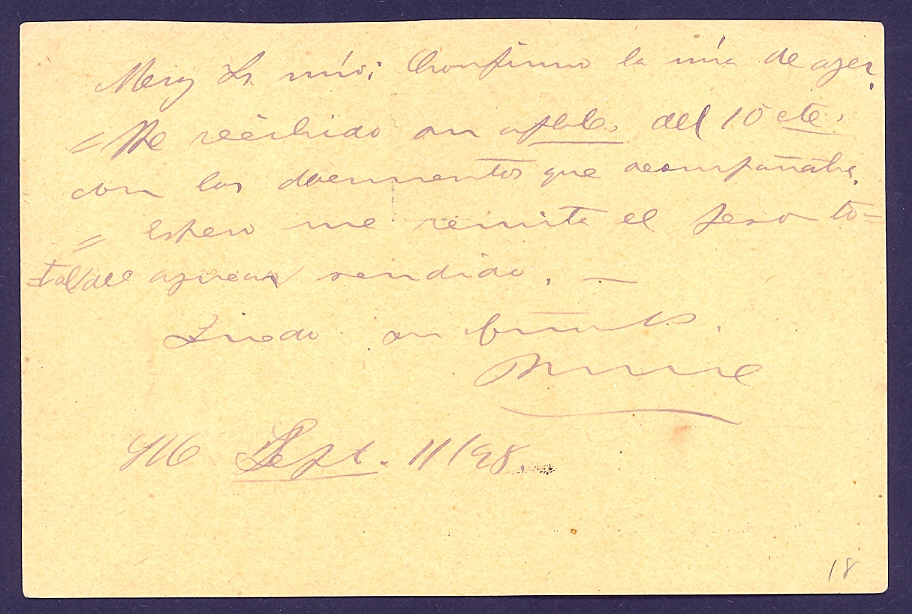 Muy Sr mio: Confirmo la mia de ayer.
= He recibido su aptble. del 10 cte.
con los documentos que acompañaba.
= Espero me remita el peso to=
tal del azucar vendido. —
Quedo su
Sept. 11/98
18